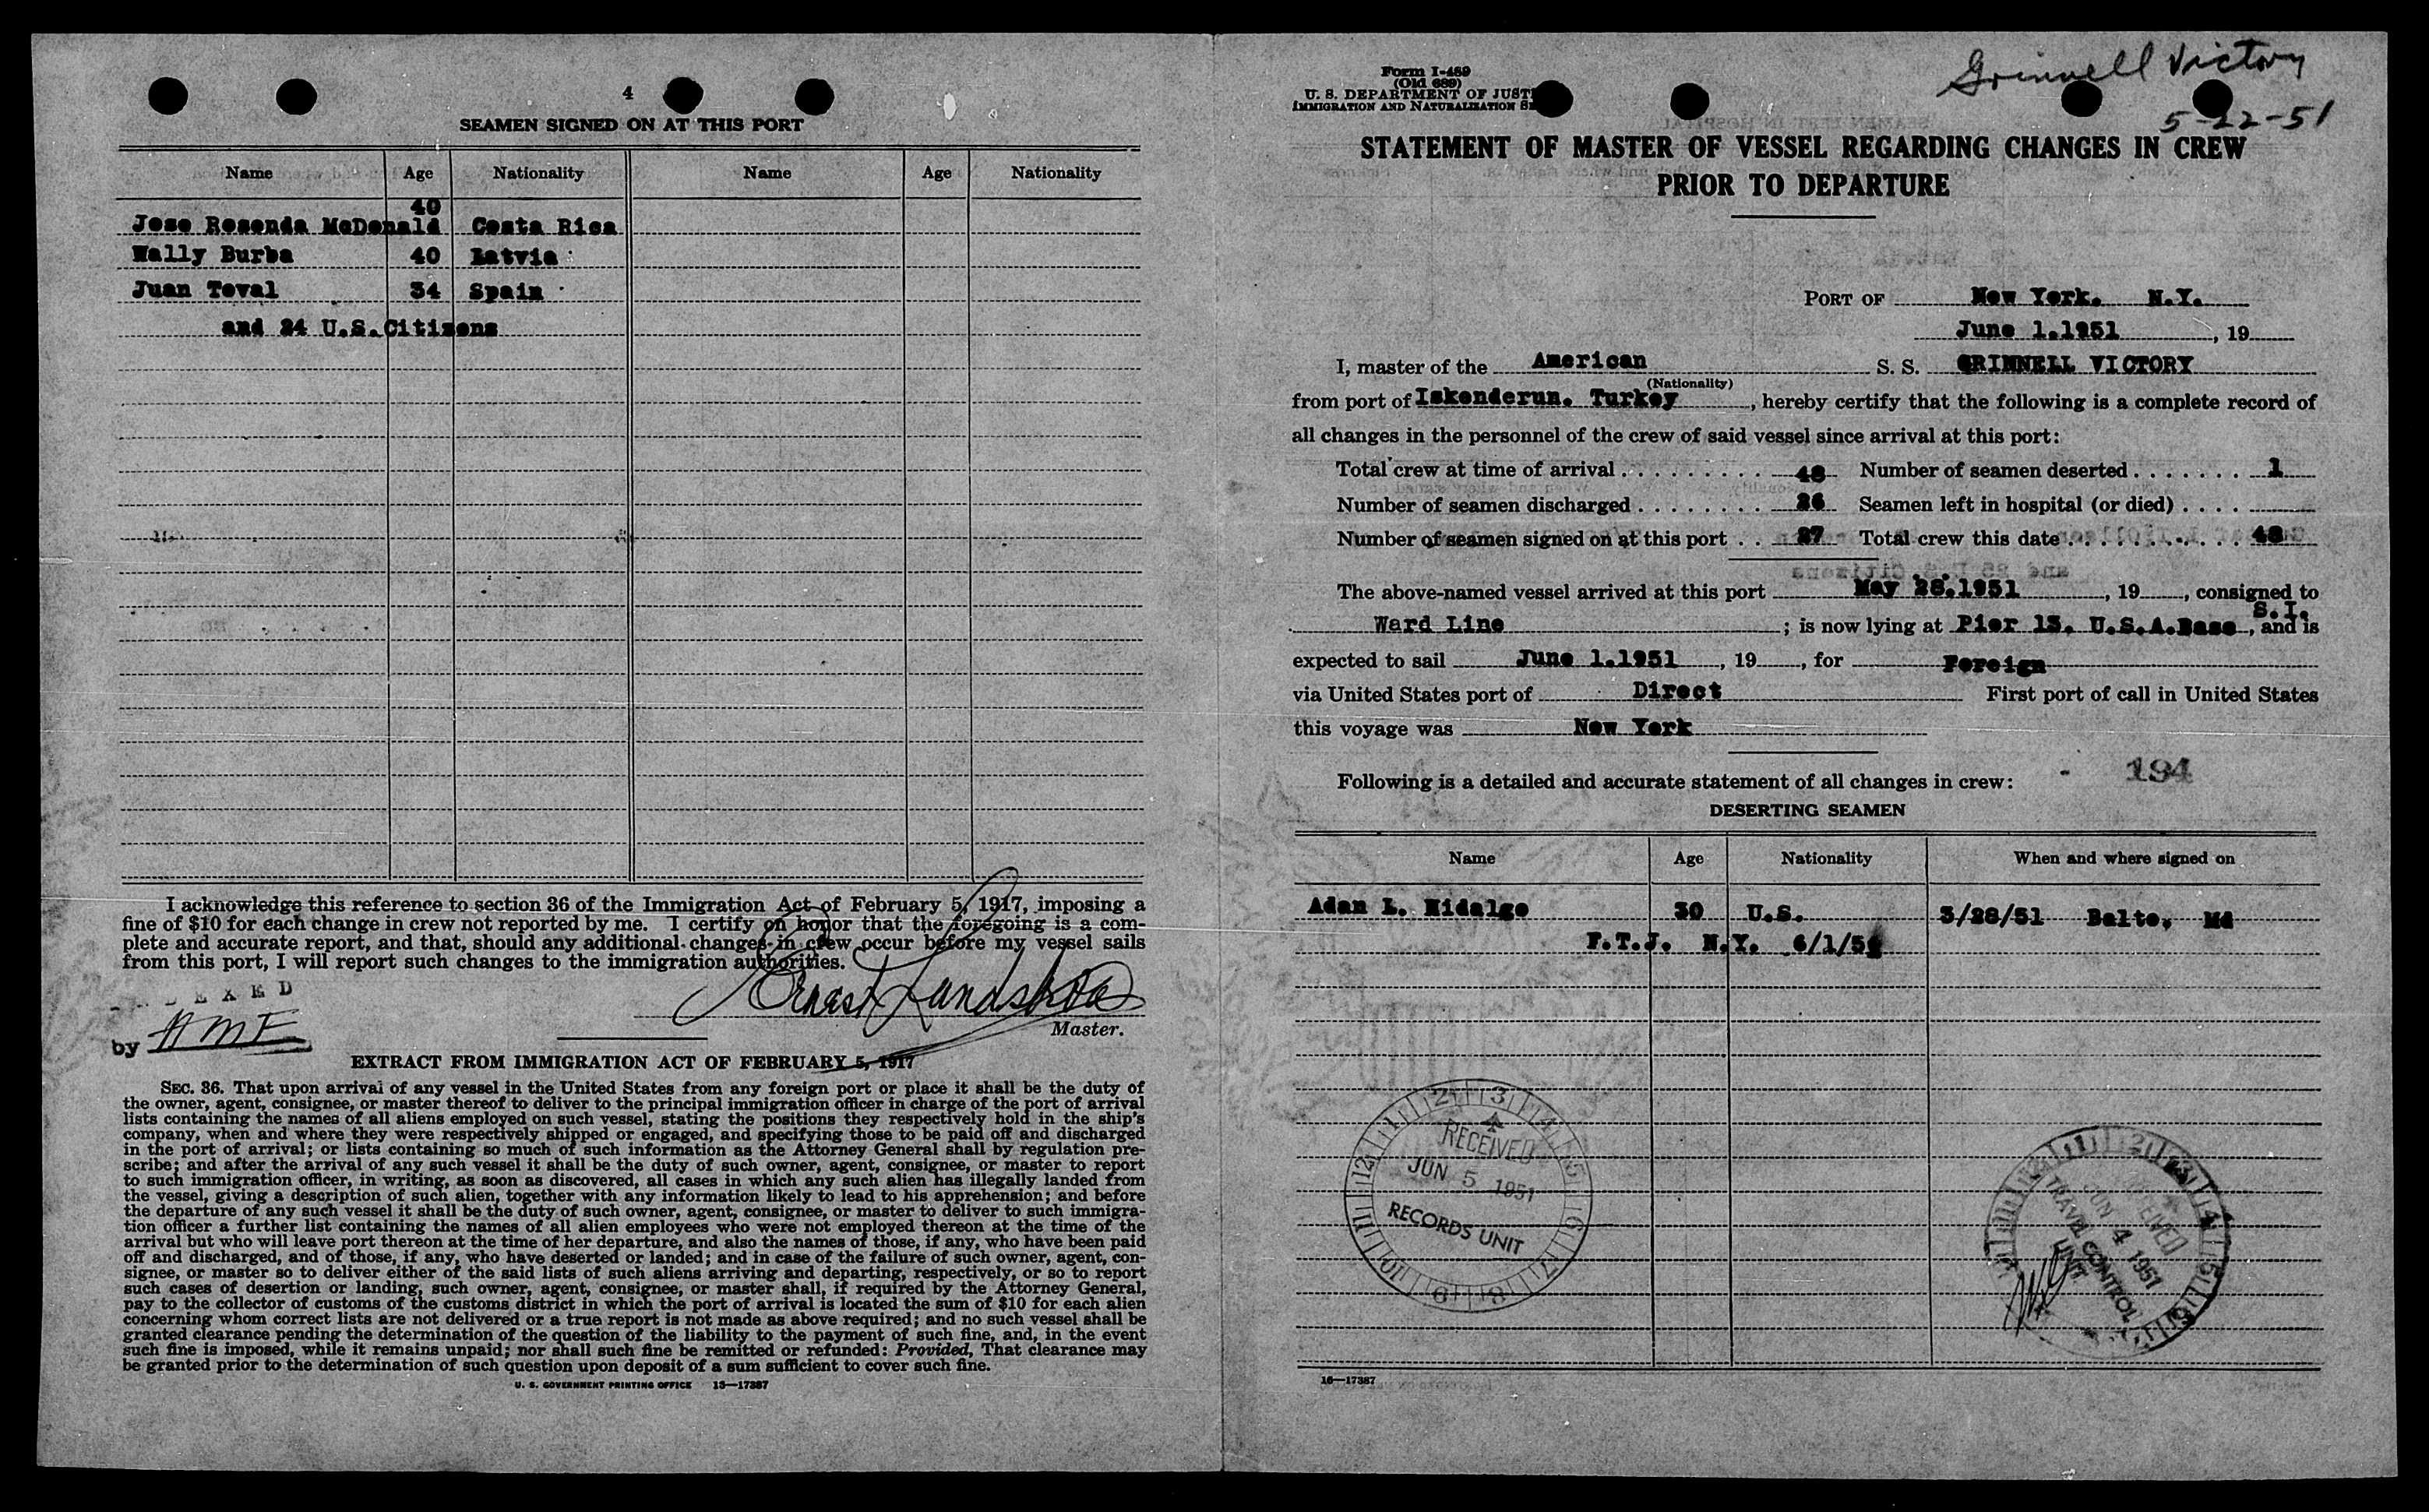 4
SEAMEN SIGNED ON AT THIS PORT
Name Age Nationality Name Age Nationality
40
Jose Rosenda McDonald Costa Rica
Wally Burba 40 Latvia
Juan Toval 34 Spain
and 24 U.S.Citizens
I acknowledge this reference to section 36 of the Immigration Act of February 5, 1917, imposing a
fine of $10 for each change in crew not reported by me. I certify on honor that the foregoing is a com-
plete and accurate report, and that, should any additional changes in crew occur before my vessel sails
from this port, I will report such changes to the immigration authorities.
Ernest
Master.
by HMF
EXTRACT FROM IMMIGRATION ACT OF FEBRUARY 5, 1917
SEC. 36. That upon arrival of any vessel in the United States from any foreign port or place it shall be the duty of
the owner, agent, consignee, or master thereof to deliver to the principal immigration officer in charge of the port of arrival
lists containing the names of all aliens employed on such vessel, stating the positions they respectively hold in the ship's
company, when and where they were respectively shipped or engaged, and specifying those to be paid off and discharged
in the port of arrival; or lists containing so much of such information as the Attorney General shall by regulation pre-
scribe; and after the arrival of any such vessel it shall be the duty of such owner, agent, consignee, or master to report
to such immigration officer, in writing, as soon as discovered, all cases in which any such alien has illegally landed from
the vessel, giving a description of such alien, together with any information likely to lead to his apprehension; and before
the departure of any such vessel it shall be the duty of such owner, agent, consignee, or master to deliver to such immigra-
tion officer a further list containing the names of all alien employees who were not employed thereon at the time of the
arrival but who will leave port thereon at the time of her departure, and also the names of those, if any, who have been paid
off and discharged, and of those, if any, who have deserted or landed; and in case of the failure of such owner, agent, con-
signee, or master so to deliver either of the said lists of such aliens arriving and departing, respectively, or so to report
such cases of desertion or landing, such owner, agent, consignee, or master shall, if required by the Attorney General,
pay to the collector of customs of the customs district in which the port of arrival is located the sum of $10 for each alien
concerning whom correct lists are not delivered or a true report is not made as above required; and no such vessel shall be
granted clearance pending the determination of the question of the liability to the payment of such fine, and, in the event
such fine is imposed, while it remains unpaid; nor shall such fine be remitted or refunded: Provided, That clearance may
be granted prior to the determination of such question upon deposit of a sum sufficient to cover such fine.
U. S. GOVERNMENT PRINTING OFFICE 13—17387
Grinnell Victory
5-22-51
Form I-489
(Old 689)
U. S. DEPARTMENT OF JUST
IMMIGRATION AND NATURALIZATION SE
STATEMENT OF MASTER OF VESSEL REGARDING CHANGES IN CREW
PRIOR TO DEPARTURE
PORT OF New York. N.Y.
June 1.1951, 19
I, master of the American S. S. GRINNELL VICTORY
(Nationality)
from port of Iskenderun. Turkey, hereby certify that the following is a complete record of
all changes in the personnel of the crew of said vessel since arrival at this port:
Total crew at time of arrival 48 Number of seamen deserted 1
Number of seamen discharged 26 Seamen left in hospital (or died)
Number of seamen signed on at this port 27 Total crew this date 48
The above-named vessel arrived at this port May 28.1951, 19, consigned to
S.I.
Ward Line; is now lying at Pier 13. U.S.A.Base, and is
expected to sail June 1.1951, 19, for Foreign
via United States port of Direct First port of call in United States
this voyage was New York
Following is a detailed and accurate statement of all changes in crew:
194
DESERTING SEAMEN
Name Age Nationality When and where signed on
Adan L. Hidalgo 30 U.S. 3/28/51 Balto, Md
F.T.J. N.Y. 6/1/51
RECEIVED
JUN 5 1951
RECORDS UNIT
RECEIVED
JUN 4 1951
TRAVEL CONTROL
UNIT
16—17387